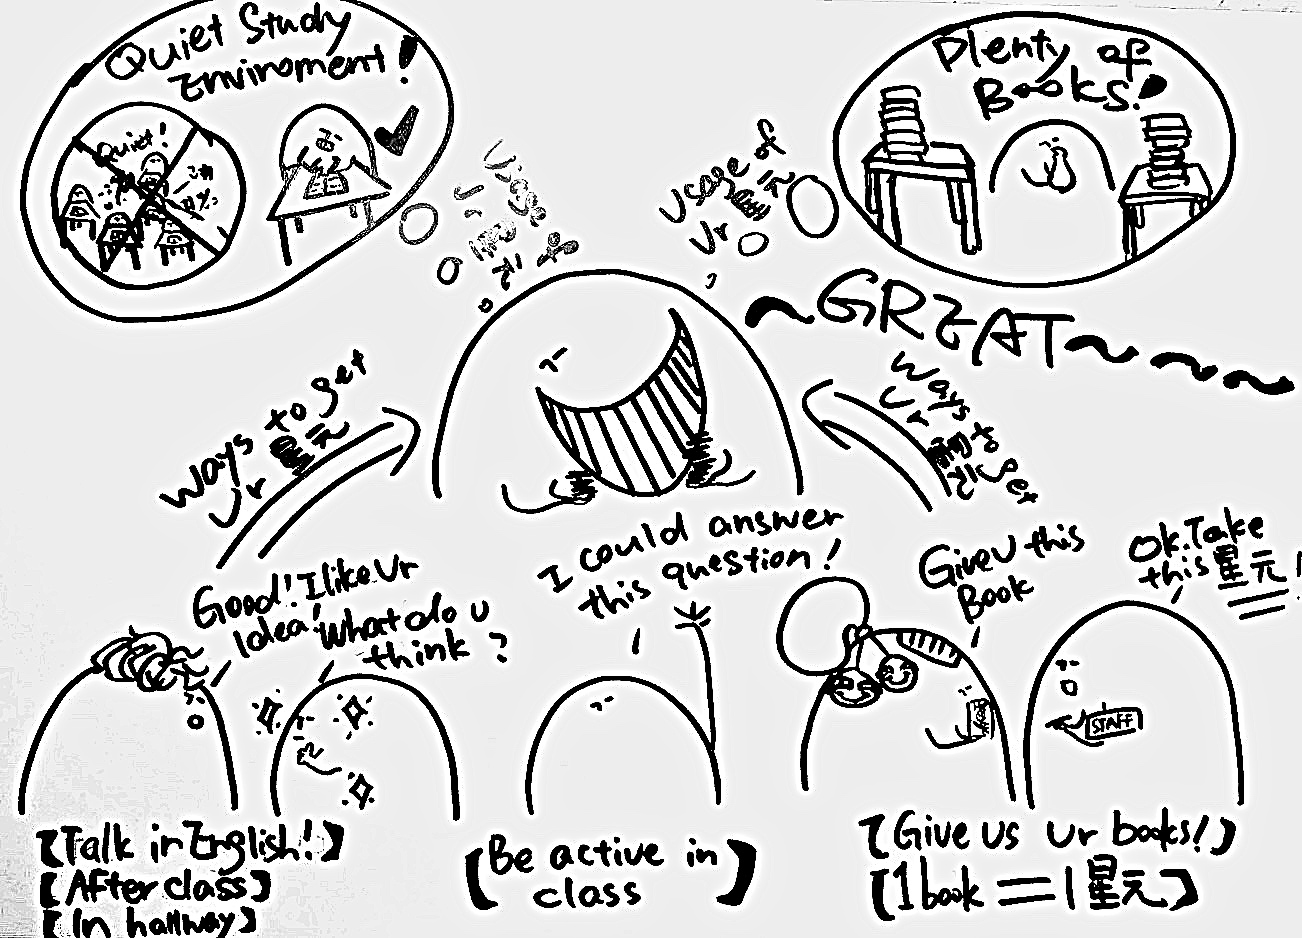 Quiet Study
Enviroment!
Quiet!
Plenty of
Books!
Usage of
Ur 星元
Usage of
Ur 星元
~GREAT~~~
Ways to get
Ur 星元
Ways to get
Ur 星元
Good! I like Ur
Idea!
What do u
think?
I could answer
this question!
Give U this
Book
Ok. Take
this 星元!
STAFF
【Talk in English!】
【After class】
【In hallway】
【Be active in
class】
【Give us Ur books!】
【1 book = 1 星元】